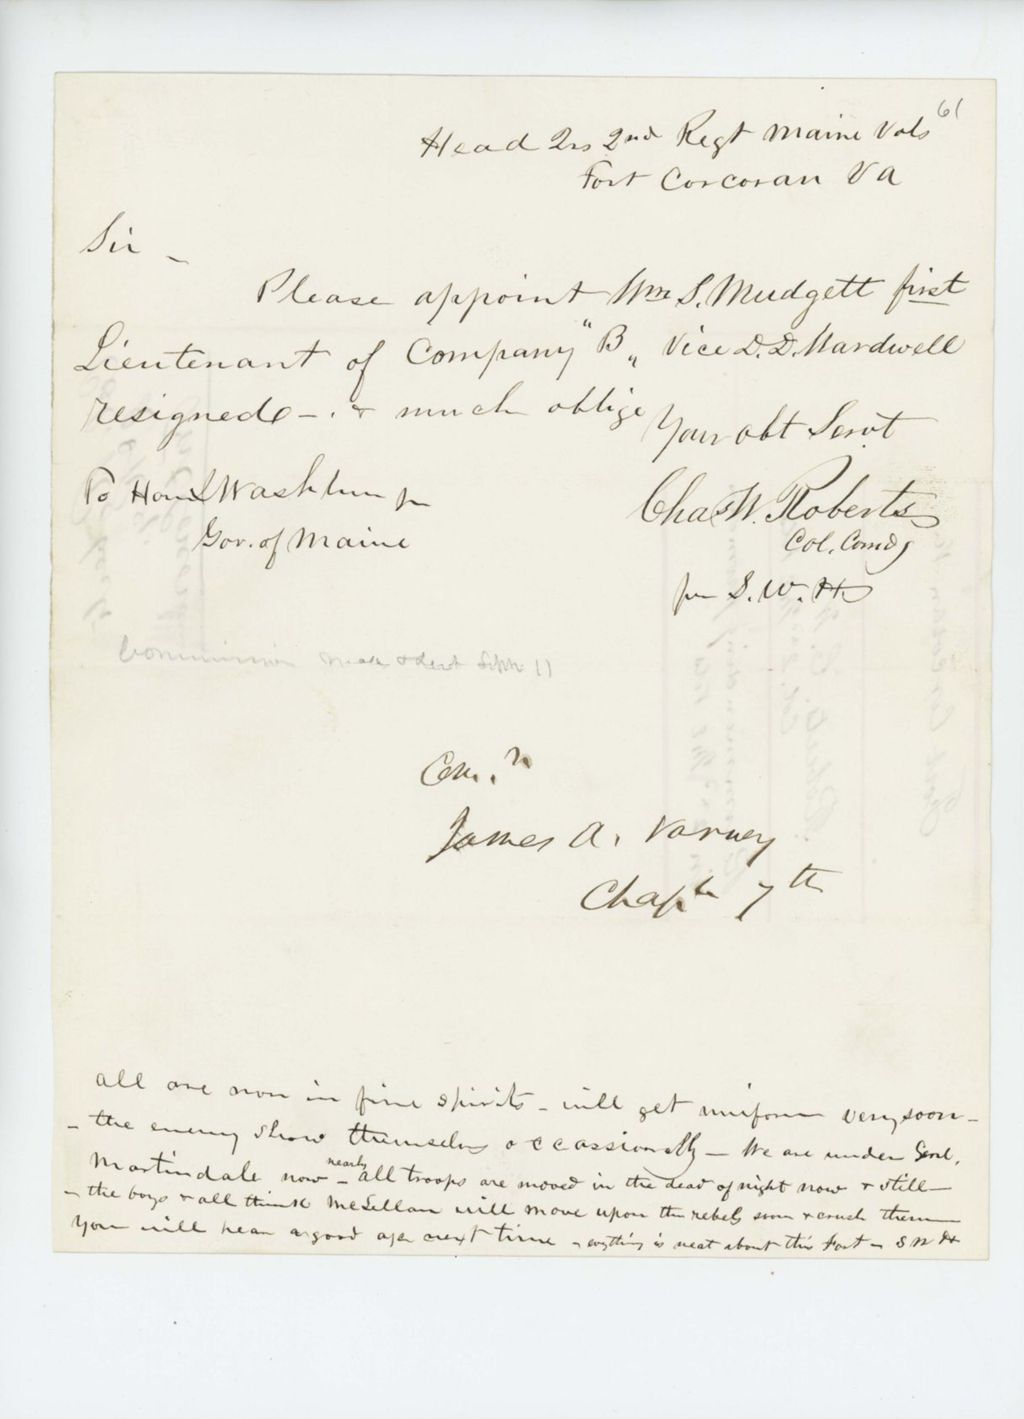 61
Head Qrs 2nd Regt Maine Vols
Fort Corcoran Va
Sir -
Please appoint Wm S. Mudgett first
Lieutenant of Company "B" Vice D. D. Mardwell
resigned - & much oblige
Your obt Servt
To Hon I Washburn Jr
Chas W. Roberts
Gov. of Maine
Col. Comdg
per S. W. H
Commission made & sent Sept 11
Com.n
James A. Varney
7th
all are now in fine spirits - will get uniform very soon -
- the enemy show themselves occassionally - We are under Genl.
Martindale now - nearly all troops are moved in the dead of night now & still -
- the boys & all think McLellan will move upon the rebels soon & crush them
You will hear a good a/c next time - evything is neat about this Fort - S W H